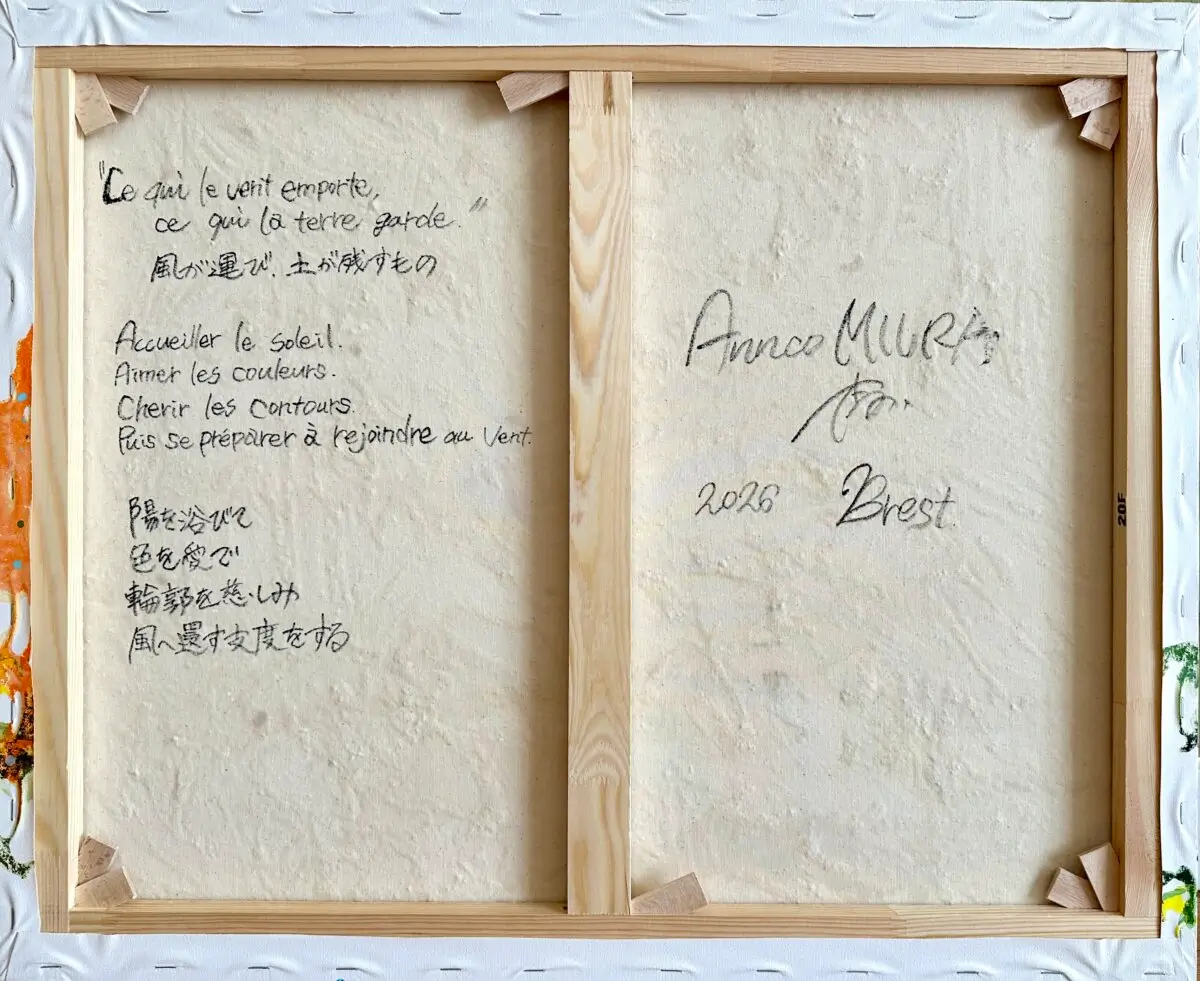 "Ce qui le vent emporte,
ce qui la terre garde."
風が運び、土が残すもの
Accueiller le soleil.
Aimer les couleurs.
Cherir les contours.
Puis se préparer à rejoindre au vent.
陽を浴びて
色を愛で
輪郭を慈しみ
風へ還す支度をする
Annco MIURA
2026 Brest
20F